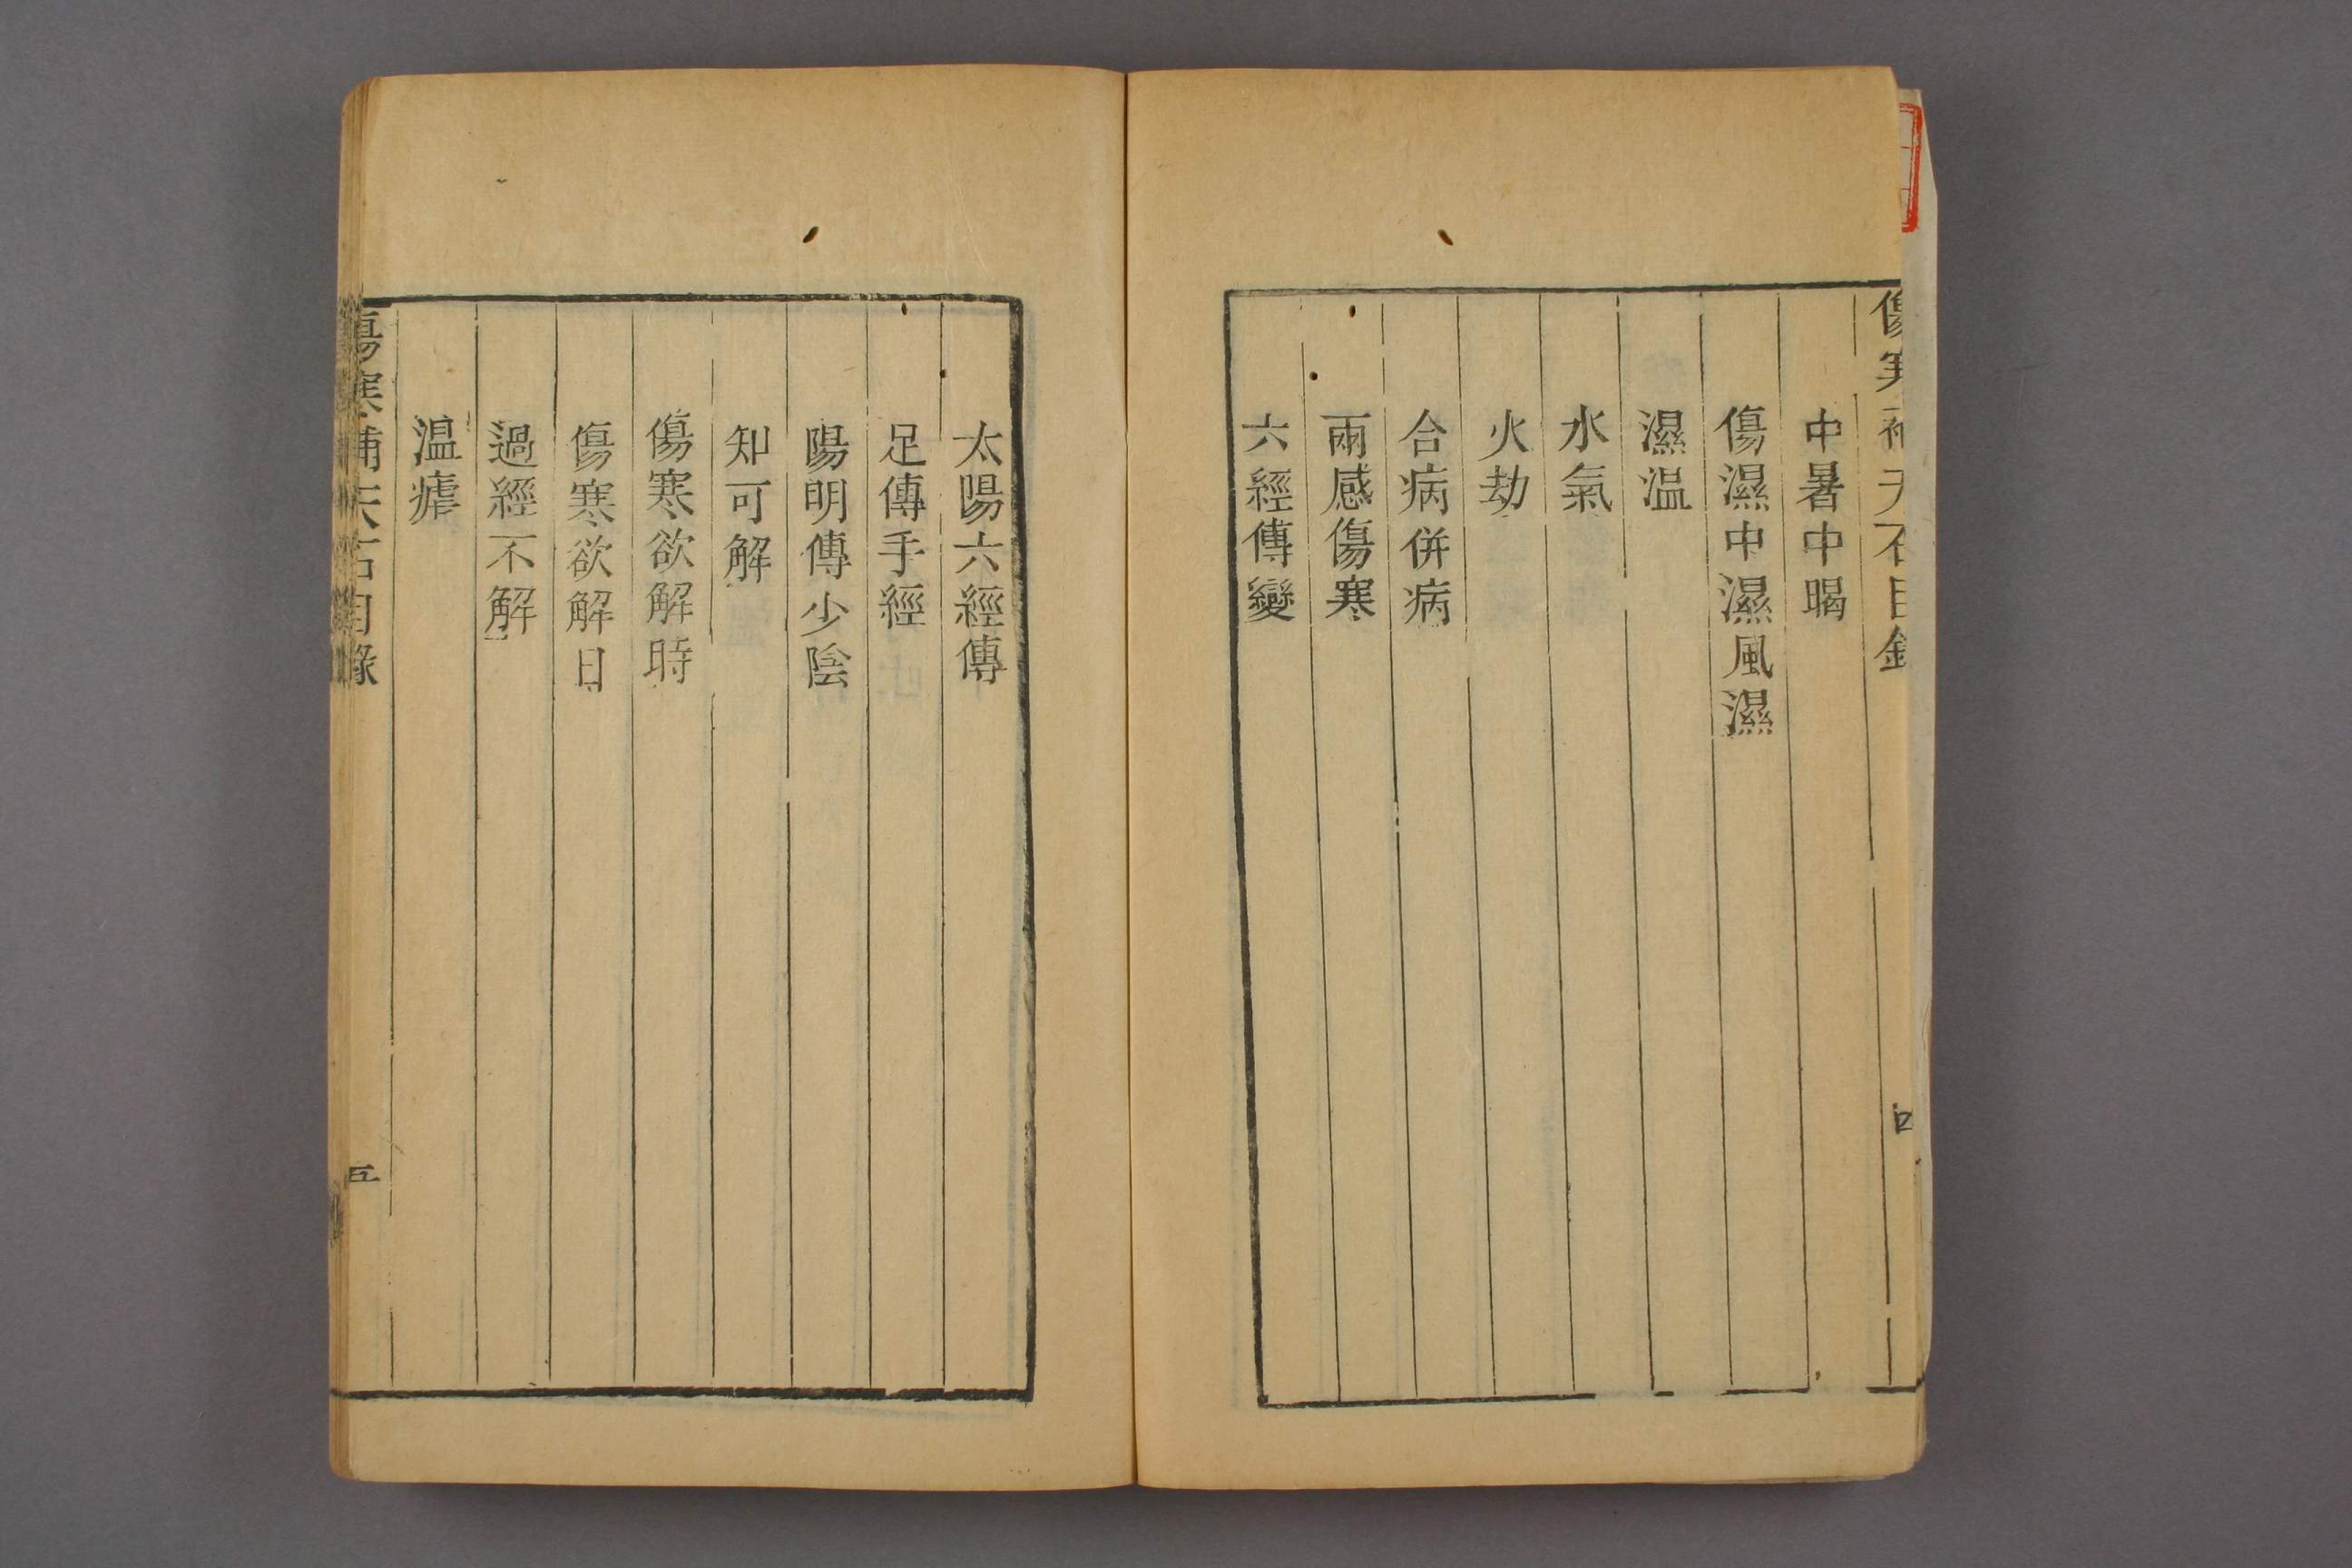 傷寒補天石目錄
四
中暑中暍
傷濕中濕風濕
濕温
水氣
火劫
合病併病
兩感傷寒
六經傳變
太陽六經傳
足傳手經
陽明傳少陰
知可解
傷寒欲解時
傷寒欲解日
過經不解
温瘧
傷寒補天石目錄
五